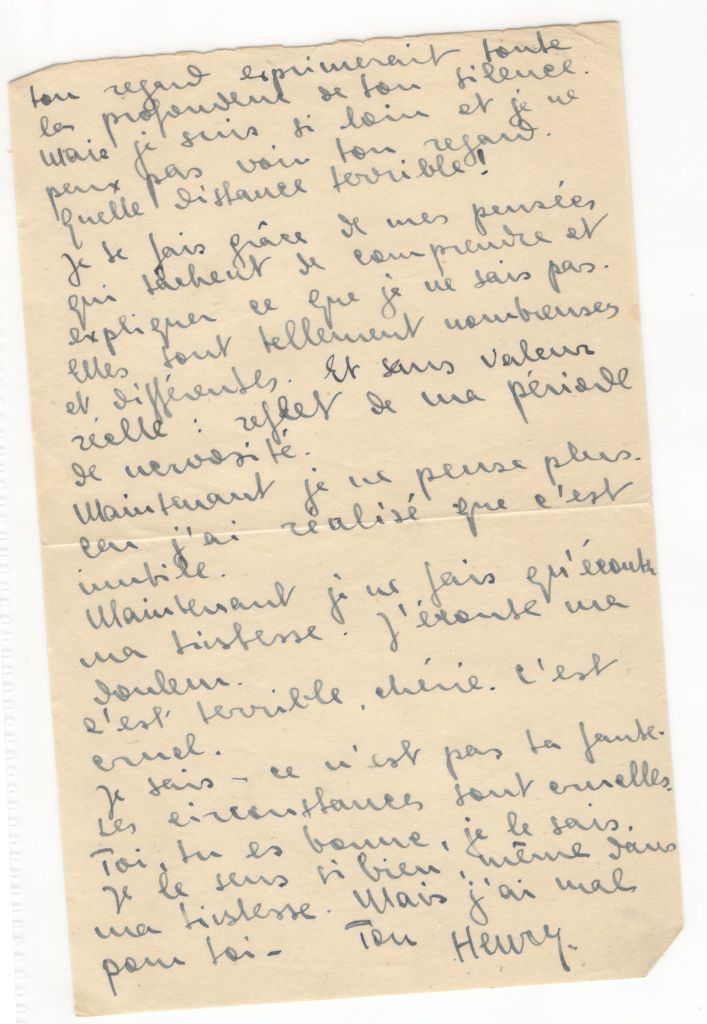 ton regard exprimerait toute
la profondeur de ton silence.
Mais je suis si loin et je ne
peux pas voir ton regard.
Quelle distance terrible!
Je te fais grâce de mes pensées
qui tâchent de comprendre et
expliquer ce que je ne sais pas.
Elles sont tellement nombreuses
et différentes. Et sans valeur
réelle : reflet de ma période
de nervosité.
Maintenant je ne pense plus.
car j'ai réalisé que c'est
inutile.
Maintenant je ne fais qu'écouter
ma tristesse. J'écoute ma
douleur.
C'est terrible, chérie. C'est
cruel.
Je sais – ce n'est pas ta faute.
Les circonstances sont cruelles.
Toi, tu es bonne, je le sais.
Je le sens si bien, même dans
ma tristesse. Mais j'ai mal
pour toi – Ton Henry.